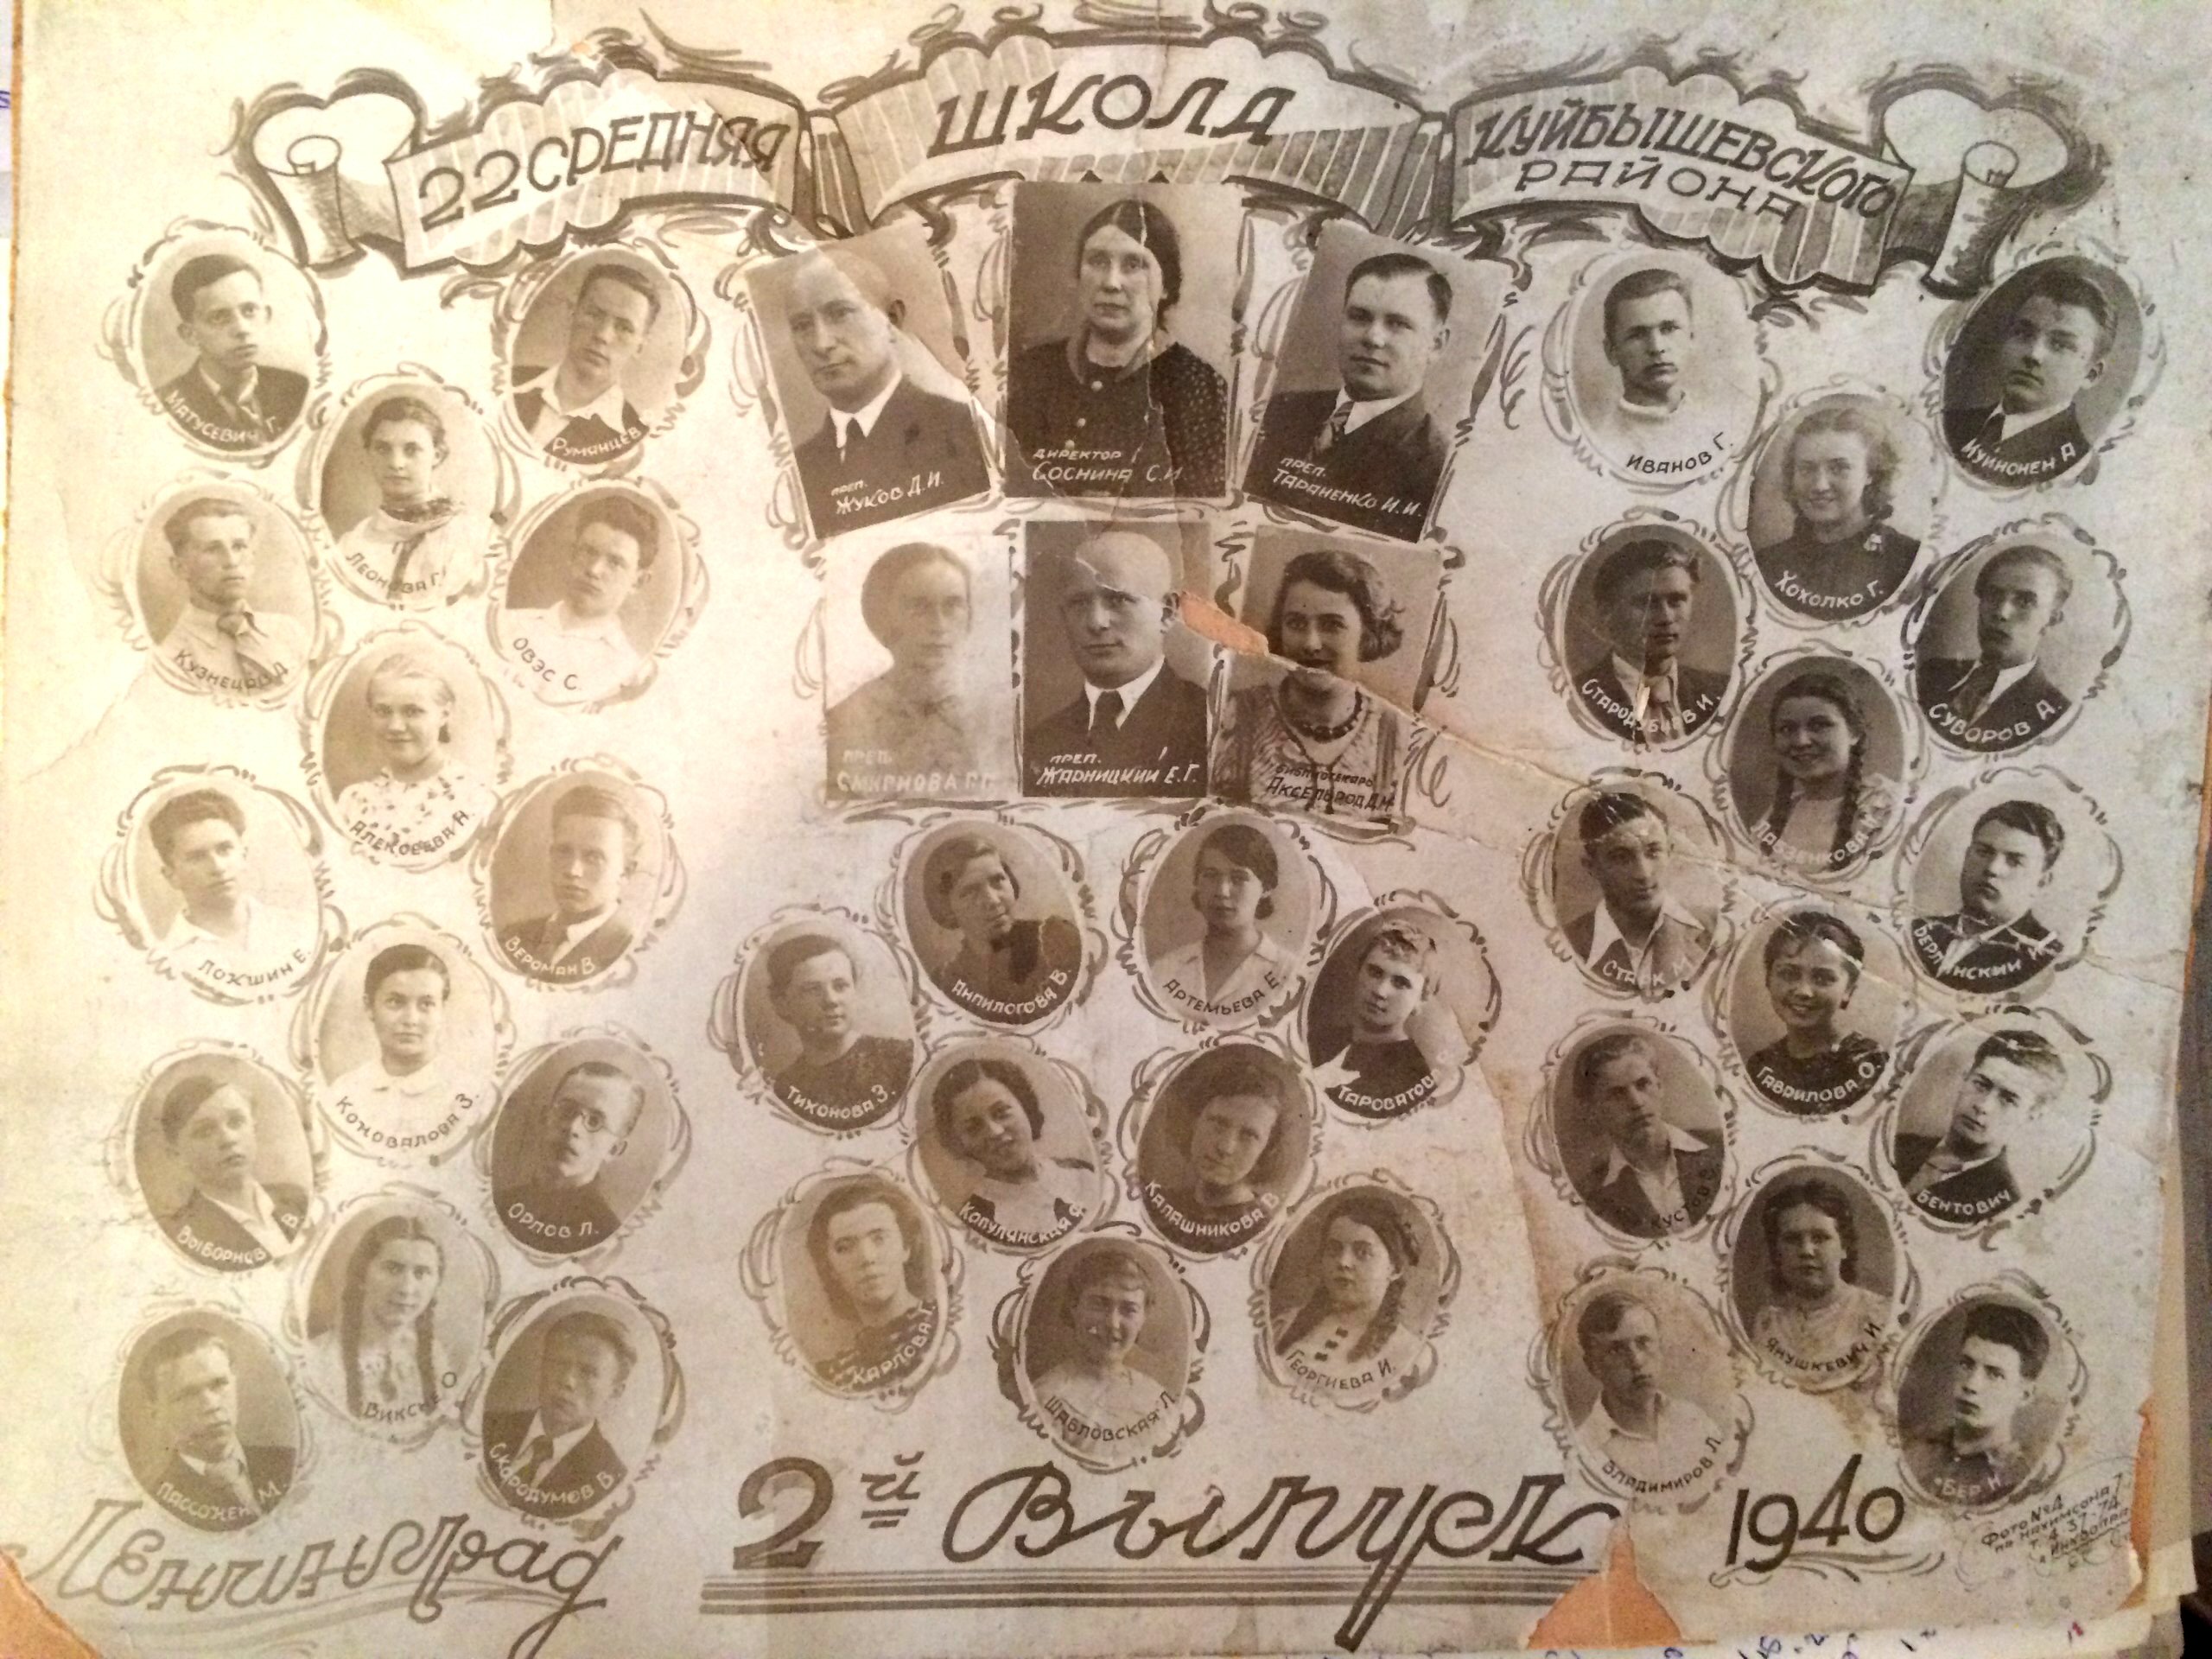 22 СРЕДНЯЯ
ШКОЛА
КУЙБЫШЕВСКОГО
РАЙОНА
МАТУСЕВИЧ Г.
РУМЯНЦЕВ
ЛЕОНОВА Г.
КУЗНЕЦОВ Д
ОВЭС С.
АЛЕКСЕЕВА Н.
ЛОКШИН Е.
ВЕРОМАН В
КОНОВАЛОВА З.
ВЫБОРНОВ В.
ОРЛОВ Л.
О
М.
СКОРОДУМОВ В.
ПРЕП.
ЖУКОВ Д.И.
ДИРЕКТОР
СОСНИНА С.И
ПРЕП.
ТАРАНЕНКО И.И.
ПРЕП.
СМИРНОВА
ПРЕП.
ЖАРНИЦКИЙ Е.Г.
БИБЛИОТЕКАРЬ
АКСЕЛЬРОД Д.Н
АНПИЛОГОВА В.
АРТЕМЬЕВА Е.
ТИХОНОВА З.
ТАРОВАТОВ
КОПУЛЯНСКАЯ
КАЛАШНИКОВА В
КАРЛОВА Г.
ГЕОРГИЕВА И.
ШАВЛОВСКАЯ Л.
ИВАНОВ Г.
КУЙНОНЕН А
ХОХОЛКО Г.
СТАРОДУБЦЕВ И.
СУВОРОВ А.
СТАРК М
ГАВРИЛОВА О.
БЕНТОВИЧ
ЯНУШКЕВИЧ И.
ВЛАДИМИРОВ Л.
БЕР Н.
Ленинград
2й Выпуск
1940
ФОТО №4